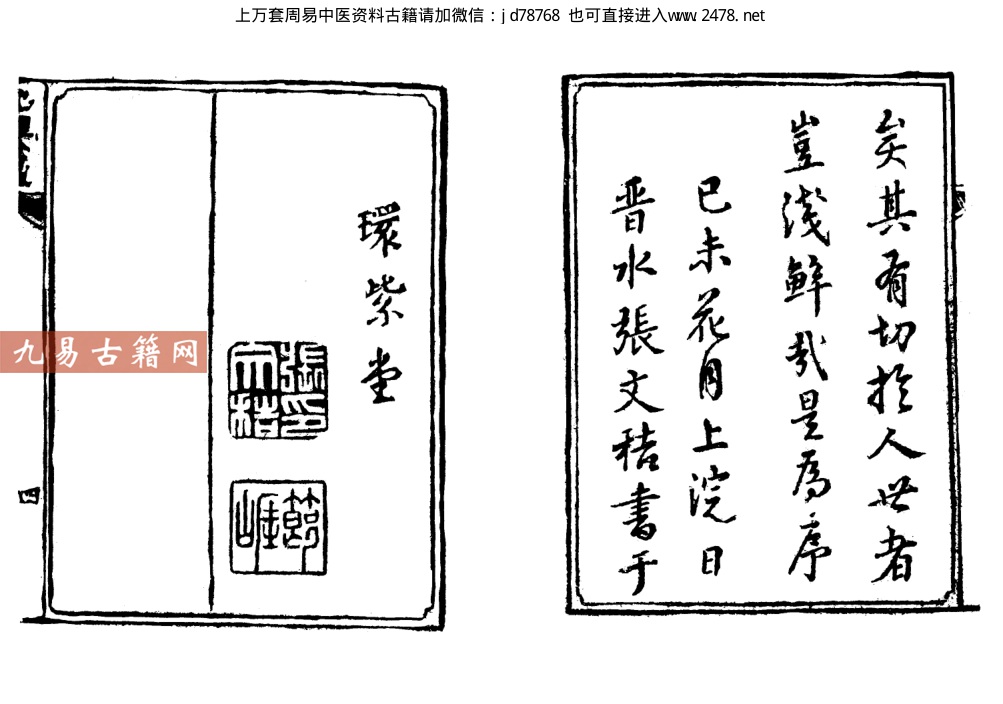 上万套周易中医资料古籍请加微信：jd78768 也可直接进入www.2478.net
矣其有切於人世者
豈淺鮮哉是爲序
已未花月上浣日
晋水張文秸書于
環紫堂
張印
文秸
九易古籍网
四